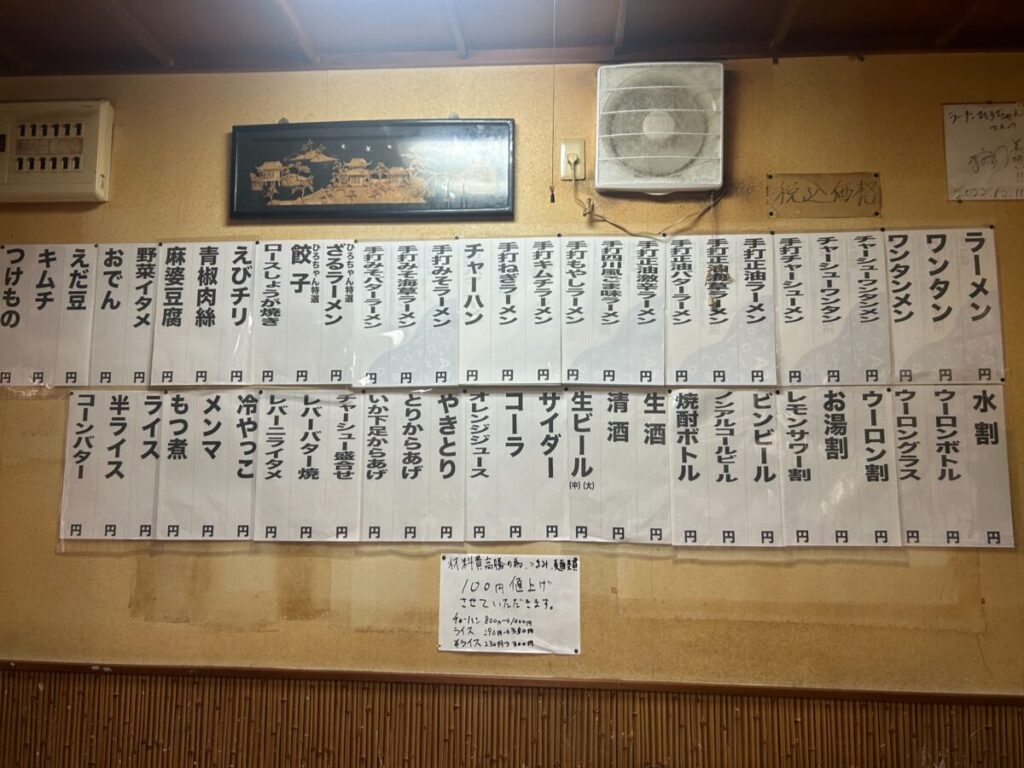 税込価格
2022.12.11
ラーメン 円
ワンタン 円
ワンタンメン 円
チャーシューワンタンメン 円
チャーシューワンタン 円
手打チャーシューメン 円
手打正油ラーメン 円
手打正油海草ラーメン 円
手打正油バターラーメン 円
手打正油激辛ラーメン 円
手打四川風ごま味ラーメン 円
手打もやしラーメン 円
手打キムチラーメン 円
手打ねぎラーメン 円
チャーハン 円
手打みそラーメン 円
手打みそ海草ラーメン 円
手打みそバターラーメン 円
ひろちゃん特選
ざるラーメン 円
ひろちゃん特選
餃子 円
ロースしょうが焼き 円
えびチリ 円
青椒肉絲 円
麻婆豆腐 円
野菜イタメ 円
おでん 円
えだ豆 円
キムチ 円
つけもの 円
水割 円
ウーロンボトル 円
ウーロングラス 円
ウーロン割 円
お湯割 円
レモンサワー割 円
ビンビール 円
ノンアルコールビール 円
焼酎ボトル 円
生酒 円
清酒 円
生ビール (中)(大) 円
サイダー 円
コーラ 円
オレンジジュース 円
やきとり 円
とりからあげ 円
いか下足からあげ 円
チャーシュー盛合せ 円
レバーバター焼 円
レバーニライタメ 円
冷やっこ 円
メンマ 円
もつ煮 円
ライス 円
半ライス 円
コーンバター 円
材料費高騰の為、つまみ、麺類
100円値上げ
させていただきます。
チャーハン 800円→1000円
ライス 290円→350円
半ライス 230円→300円